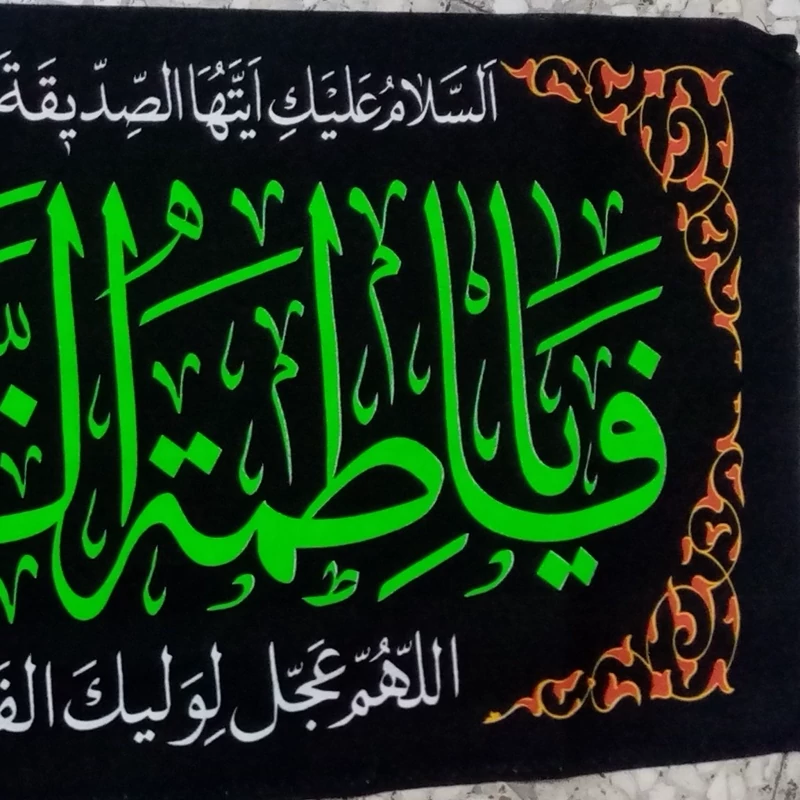 اَلسَّلامُ عَلَيْكِ اَيَّتُهَا الصِّدّيقَة
يا فاطِمَة
اللهُمَّ عَجّل لِوَليكَ